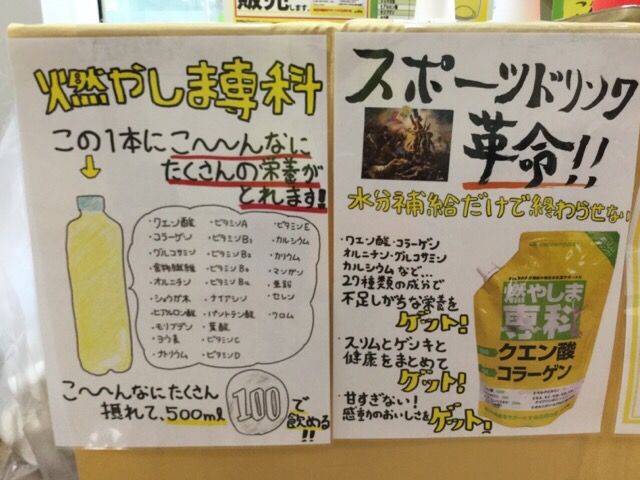 燃やしま専科
この1本にこ〜〜んなに
たくさんの栄養が
とれます!
・クエン酸
・コラーゲン
・グルコサミン
・食物繊維
・オルニチン
・ショウガ末
・ヒアルロン酸
・モリブデン
・ヨウ素
・ナトリウム
・ビタミンA
・ビタミンB1
・ビタミンB2
・ビタミンB6
・ビタミンB12
・ナイアシン
・パントテン酸
・葉酸
・ビタミンC
・ビタミンD
・ビタミンE
・カルシウム
・カリウム
・マンガン
・亜鉛
・セレン
・クロム
こ〜〜んなにたくさん
摂れて、500ml 100 で
飲める!!
スポーツドリンク
革命!!
水分補給だけで終わらせない
・クエン酸・コラーゲン
オルニチン・グルコサミン
カルシウムなど…
27種類の成分で
不足しがちな栄養を
ゲット!
・スリムとゲンキと
健康をまとめて
ゲット!
・甘すぎない!
感動のおいしさをゲット!
燃やしま
専科
クエン酸
コラーゲン